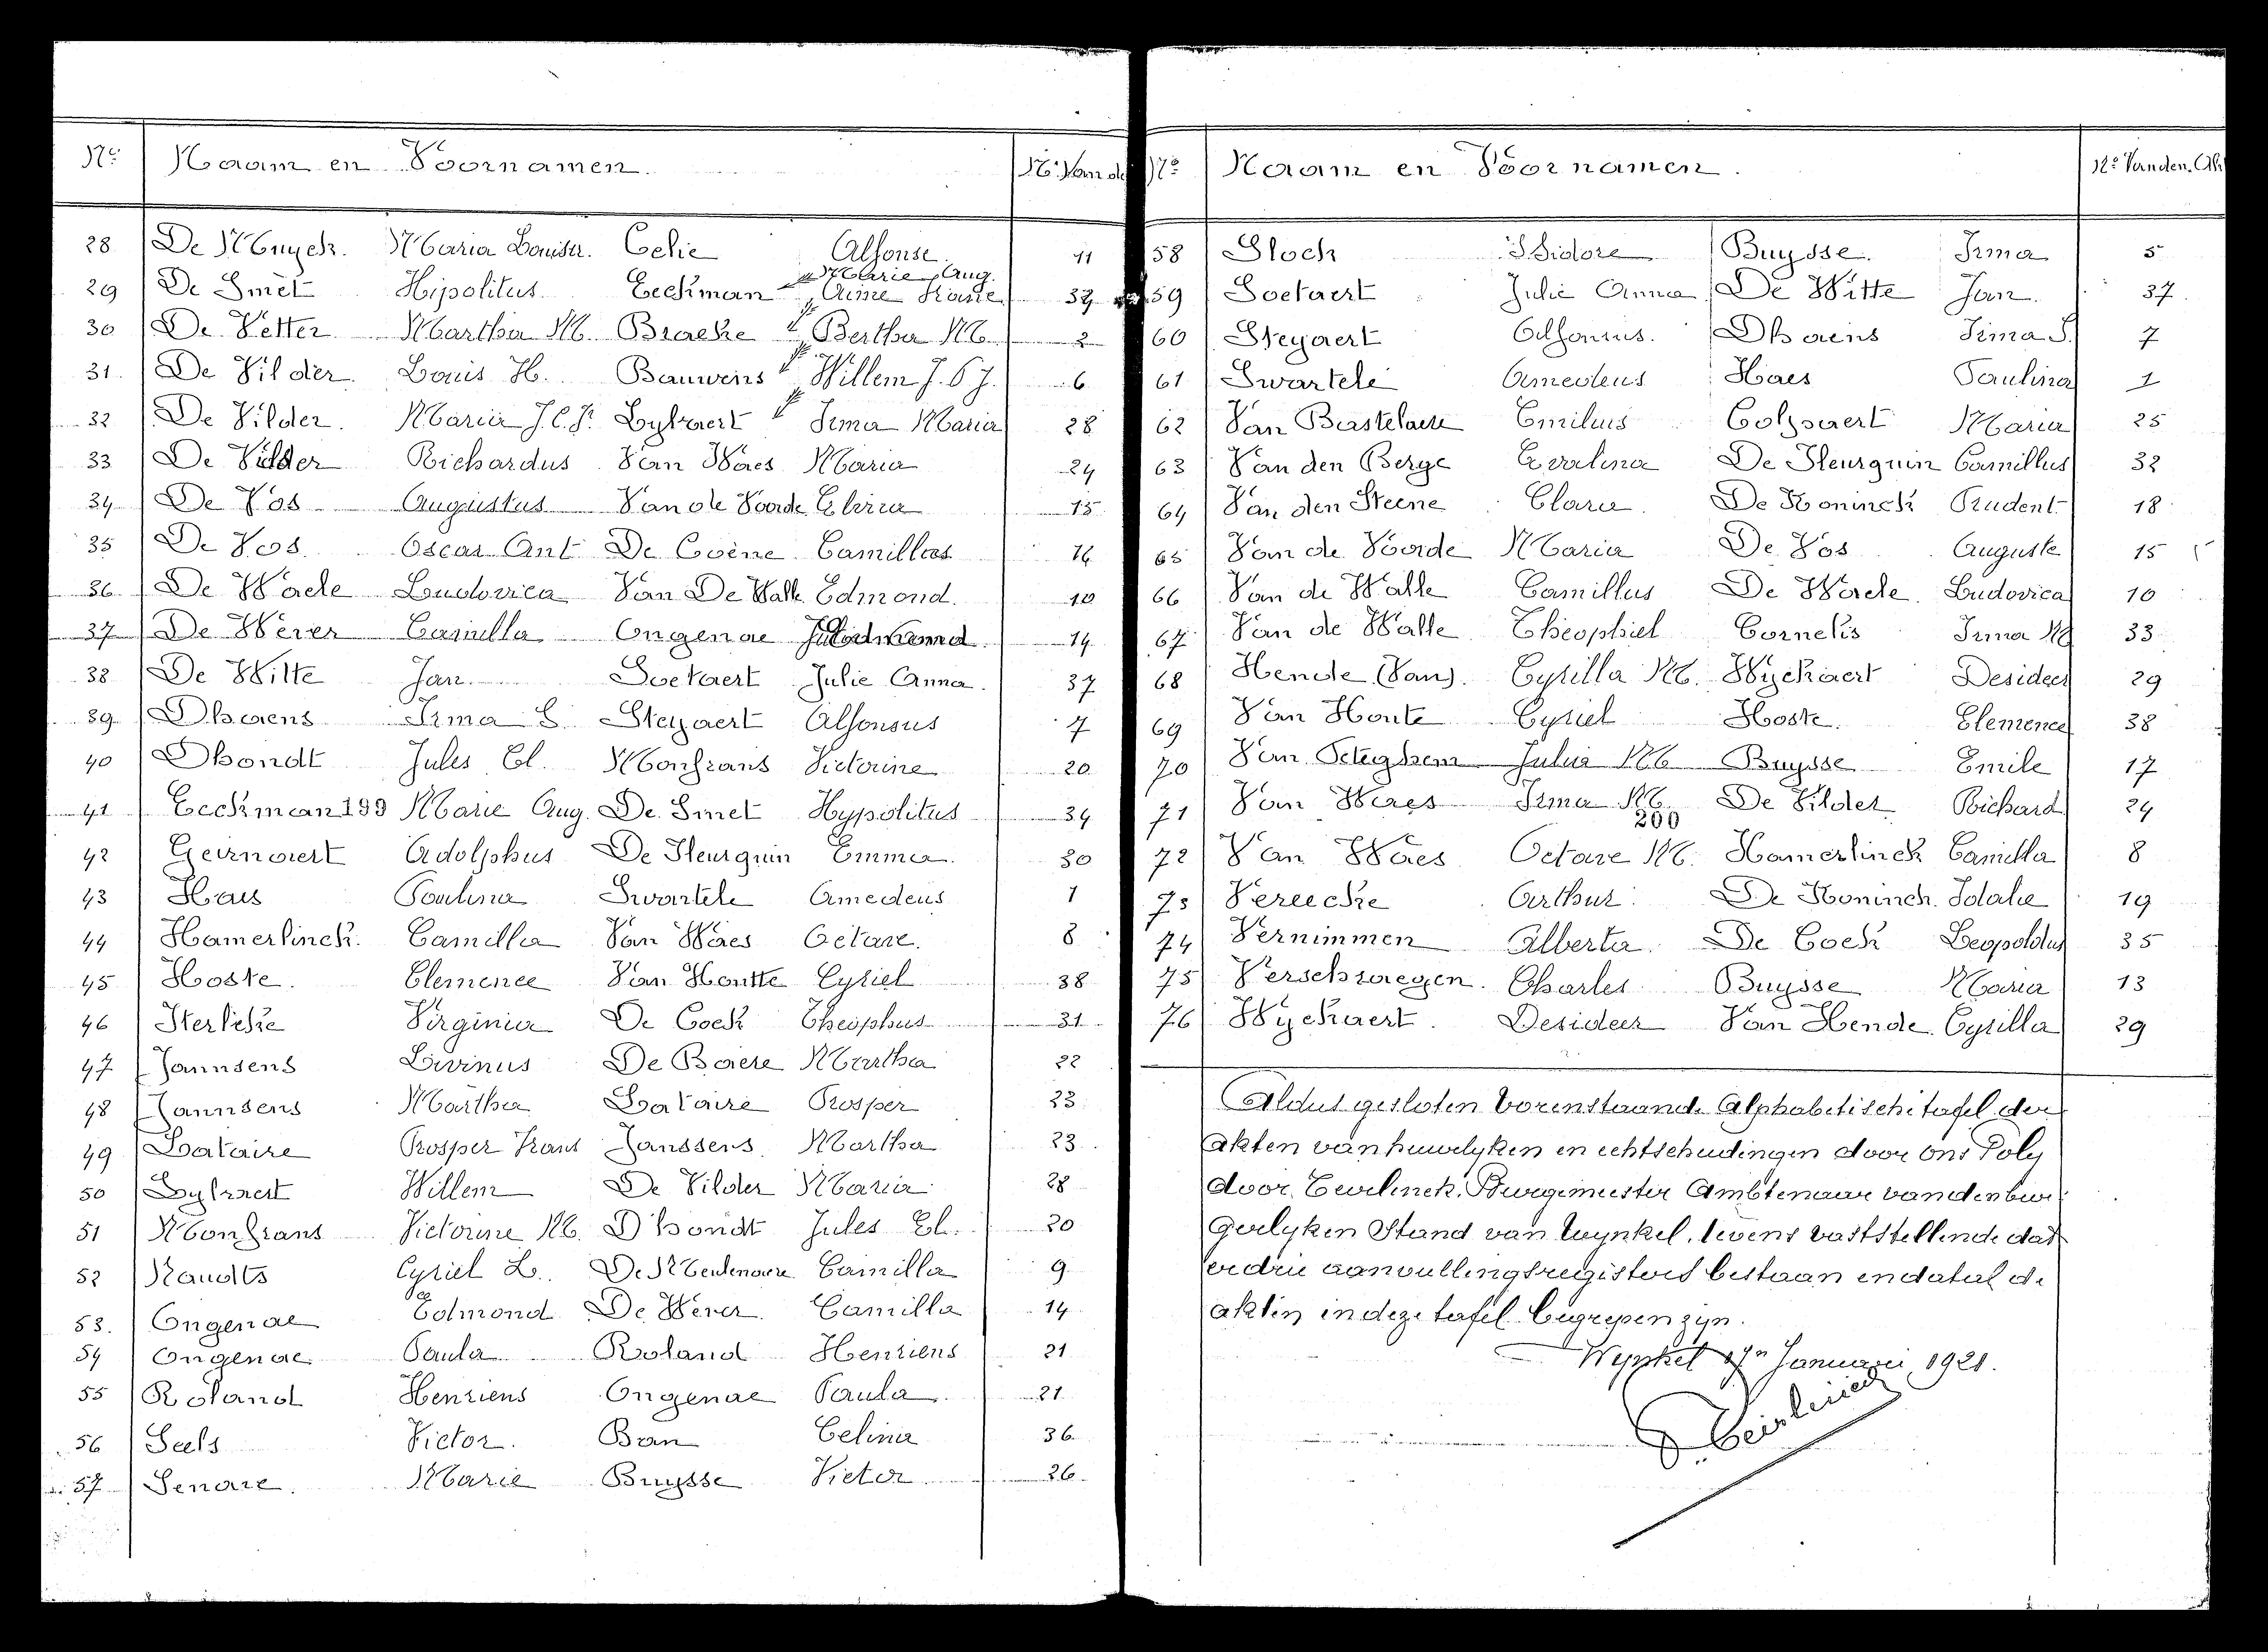 No Naam en Voornamen. No Van de
28 De Muyck. Maria Louisa. Celie Alfonse. 11
Marie Aug.
29 De Smet Hipolitus Eeckman
30 De Vetter Martha M. Bracke Bertha M. 2
31. De Vilder Louis H. Bauwens Willem J. 6
32 De Vilder. Maria Lybaert Irma Maria 28
33 De Vilder Richardus Van Waes Maria 24
34 De Vos Augustus Van de Voorde Elvira 15
35 De Vos. Oscar Ant De Coene Camillas 16
36 De Waele Ludovica Van De Walle Edmond. 10
37 De Wever Camilla Ongenae 14
38 De Witte Jan. Soetaert Julie Anna. 37
39 Dhaens Irma S. Steyaert Alfonsus 7
40 Dhondt Jules El. Monfrans Victorine 20
41 Eeckman 199 Marie Aug. De Smet Hypolitus 34
42 Geirnaert Adolphus De Sleurguin Emma. 30
43 Haes Paulina Swartele Amedeus 1
44 Hamerlinck. Camilla Van Waes Octave. 8
45 Hoste. Clemence Van Houtte Cyriel 38
46 Sterlicke Virginia De Cock Theophus 31
47 Jannsens Livinus De Baere Martha 22
48 Jannsens Martha Lataire Prosper 23
49 Lataire Prosper Frans Janssens Martha 23
50 Lybaert Willem De Vilder Maria 28
51 Monfrans Victorine M. Dhondt Jules El. 20
52 Naudts Cyriel L. De Meulenaere Camilla 9
53. Ongenae Edmond De Wever. Camilla 14
54 Ongenae Paula Roland Henriens 21
55 Roland Henriens Ongenae Paula. 21
56 Seels Victor. Ban Celina 36
57 Senave. Marie Buysse Victor 26
No Naam en Voornamen. No Van den Ak
58 Stock Isidore Buysse. Irma 5
59 Soetaert Julie Anna De Witte Jan. 37
60 Steyaert Alfonsus. Dhaens Irma S. 7
61 Swartele Amedeus Haes Paulina 1
62 Van Bastelaere Emilius Colpaert Maria 25
63 Van den Berge Evalina De Sleurguin Camillus 32
64 Van den Steene Clara. De Koninck Prudent 18
65 Van de Voorde Maria De Vos Auguste 15
66 Van de Walle Camillus De Waele. Ludovica 10
67 Van de Walle Theophiel Cornelis Irma M 33
68 Hende (Van). Cyrilla M. Wyckaert Desideer 29
69 Van Houte Cyriel Hoste. Clemence 38
70 Van Peteghem Julia M Buysse Emile 17
71 Van Waes Irma M. De Vilder Richard 24
200
72 Van Waes Octave M. Hamerlinck Camilla 8
73 Vereecke Arthur. De Koninck. Idalie 19
74 Vernimmen Alberta. De Cock Leopoldus 35
75 Verschraegen. Charles Buysse Maria 13
76 Wyckaert. Desideer Van Hende. Cyrilla 29
Aldus gesloten vorenstaande Alphabetische tafel der
akten van huwelyken en echtscheidingen door ons Poly
door Geirlinck. Burgemeester Ambtenaar van den bur
gerlyken Stand van Wynkel, tevens vaststellende dat
er drie aanvullingsregisters bestaan en dat al de
akten in deze tafel begrepen zyn.
Wynkel Januari 1921.
Geirlinck